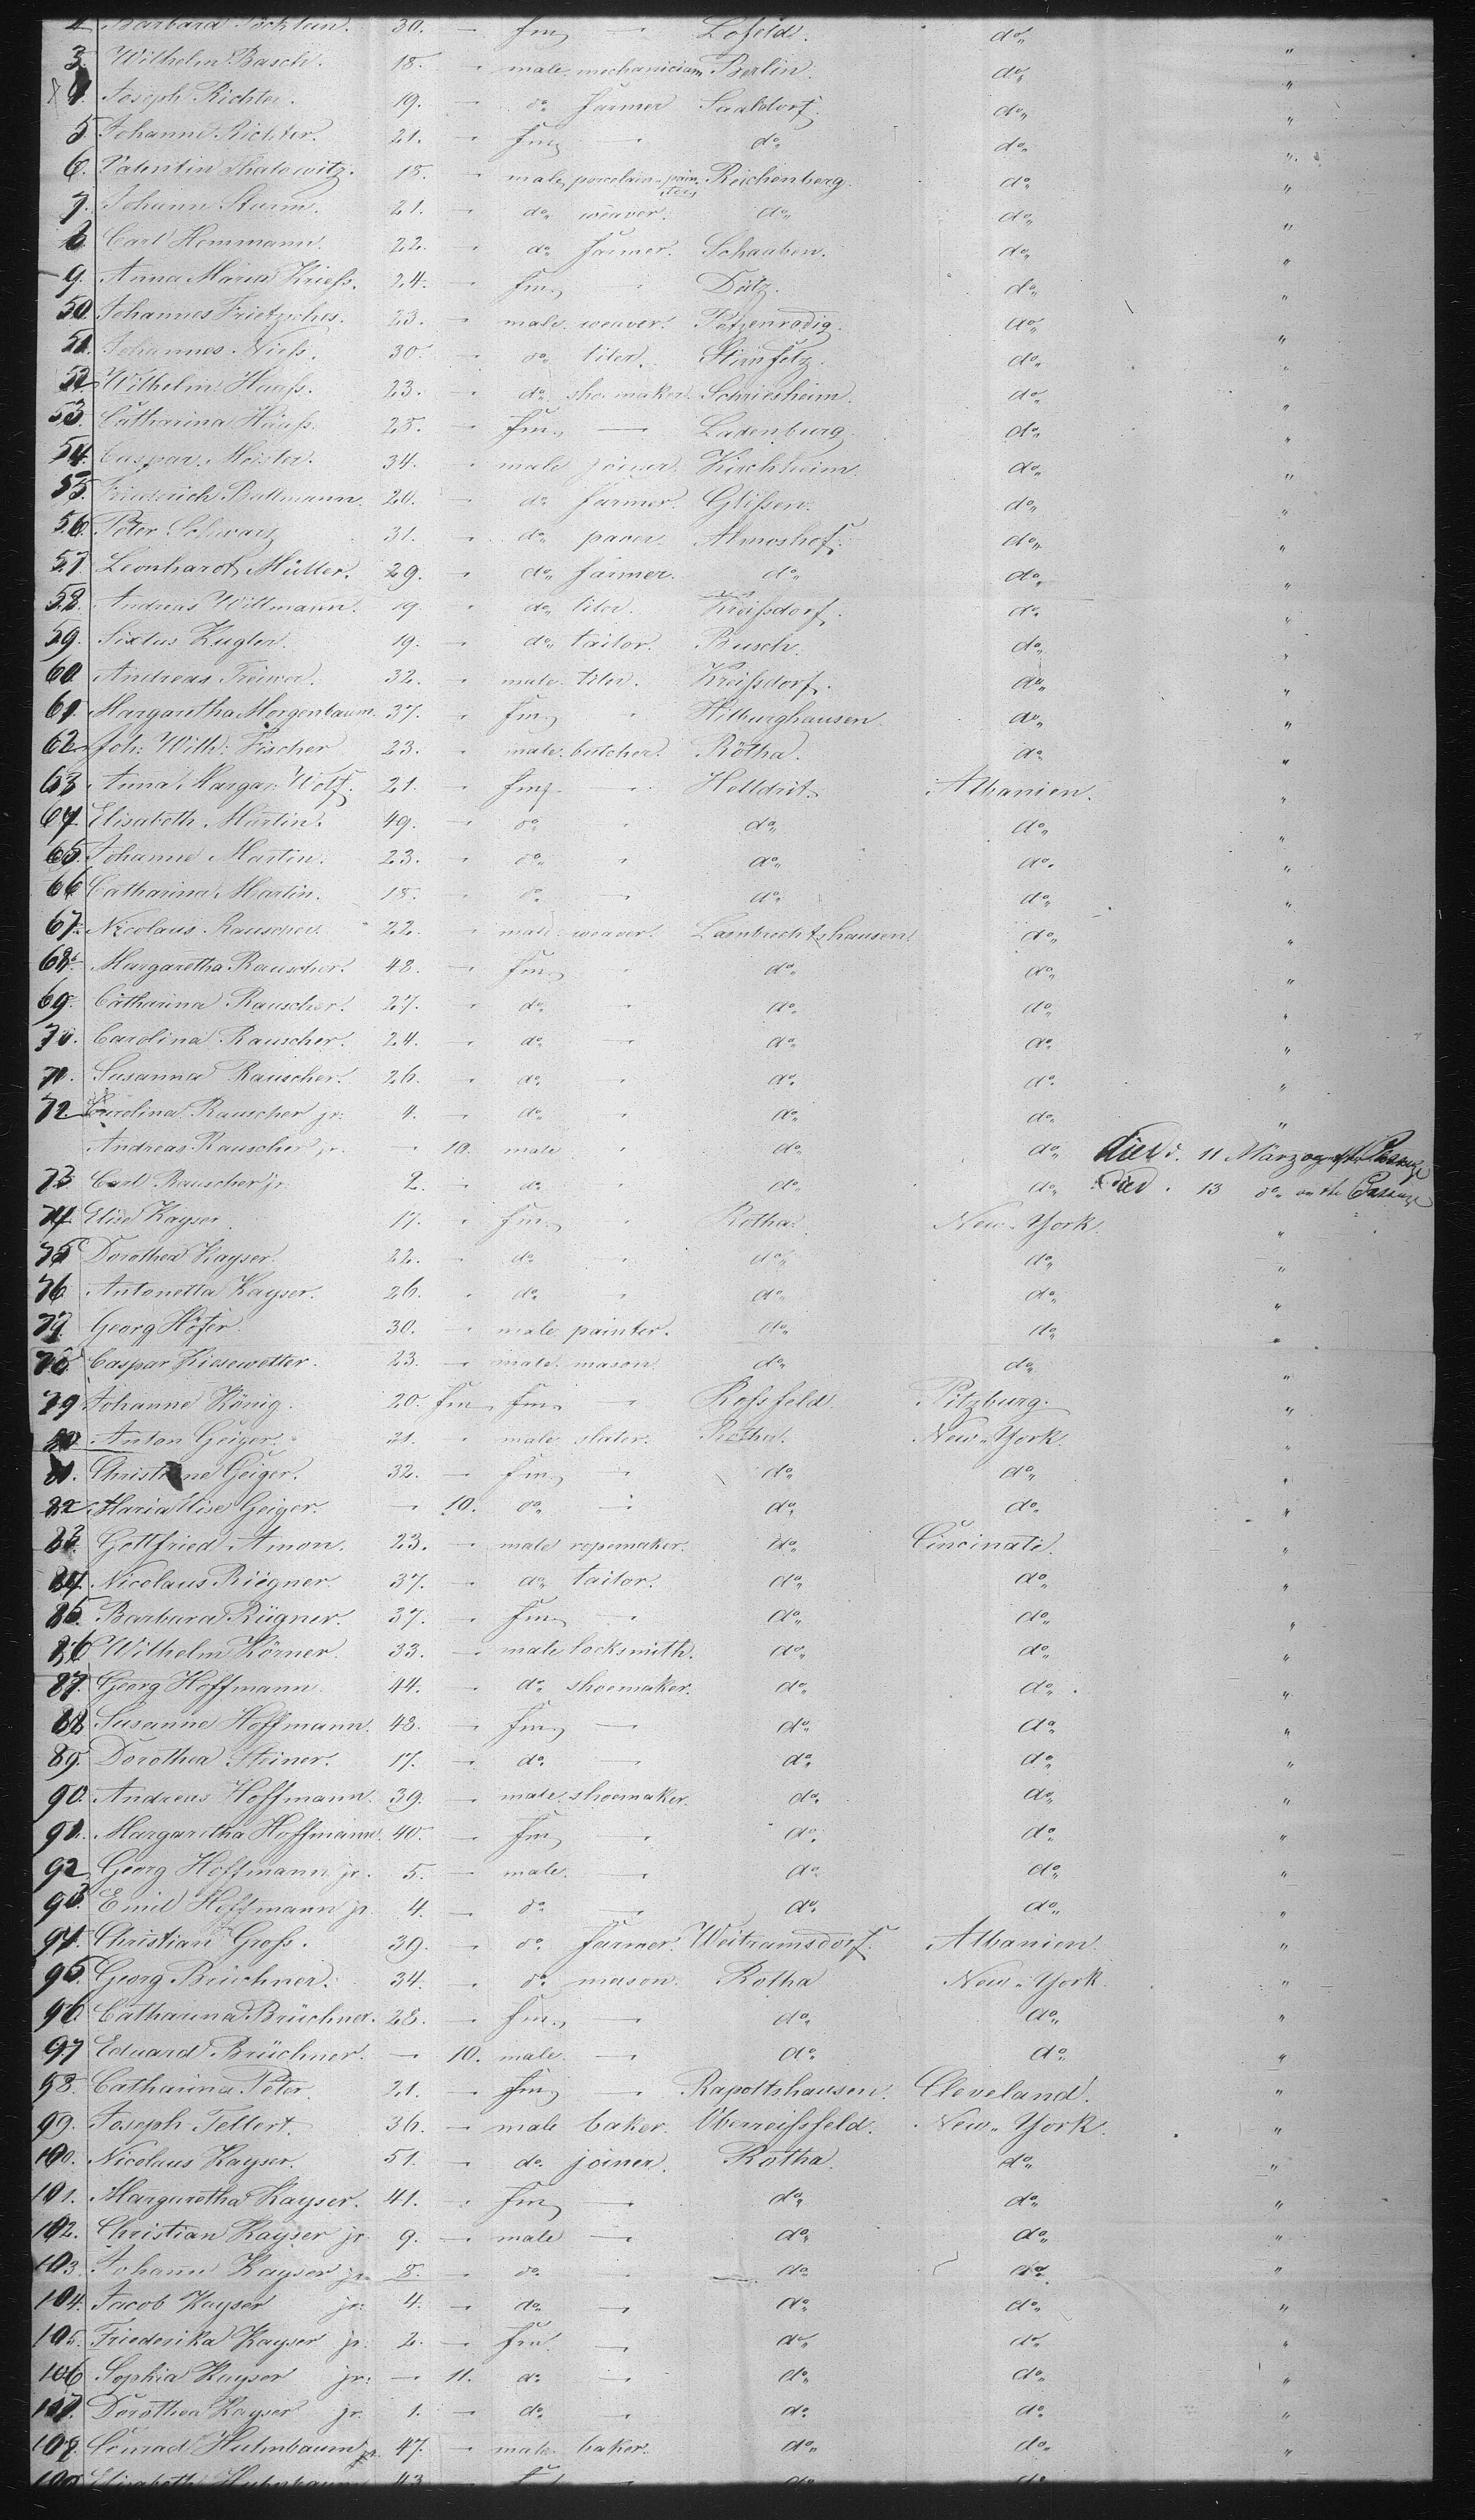 Barbara 30. — fm — Lofeld. do
3. Wilhelm Basch. 18. — male mechanician Berlin. do "
4. Joseph Richter. 19. — do farmer Saaldorf. do "
5. Johanne Richter. 21. — fm — do do "
6. Valentin Shatowitz. 18. — male porcelain-painter Reichenberg. do "
7. Johann Sturm. 21. — do weaver. do do "
8. Carl Hemmann. 22. — do farmer. Schauben. do "
9. Anna Maria Kriess. 24. — fm — Dietz. do "
50. Johannes 23. — male weaver. do "
51. Johannes Niess. 30. — do tiler. do "
52. Wilhelm Haass. 23. — do shoemaker. Schriesheim. do "
53. Catharina Haass. 25. — fm. — Ladenburg. do "
54. Caspar Meister. 34. — male joiner. Kirchheim. do "
55. Friederich Bultmann. 20. — do farmer. Glissen. do "
56. Peter Schwarz 31. — do paver. Almoshof. do "
57. Leonhardt Müller. 29. — do farmer. do do "
58. Andreas Wittmann. 19. — do tiler. Kreissdorf. do "
59. Sixtus Kugler. 19. — do tailor. Busch. do "
60. Andreas 32. — male tiler. Kreissdorf. do "
61. Margaretha Morgenbaum. 37. — fm — Hilburghausen. do "
62. Joh: Wilh: Fischer 23. — male butcher. Rötha. do "
63. Anna Margar: Wolf. 21. — fm — Helldrit. Albanien. "
64. Elisabeth Martin. 49. — do — do do "
65. Johanne Martin. 23. — do — do do "
66. Catharina Martin. 18. — do — do do "
67. Nicolaus Rauscher. 22. — male weaver. Lambrechtshausen. do "
68. Margaretha Rauscher. 48. — fm — do do "
69. Catharina Rauscher. 27. — do — do do "
70. Carolina Rauscher. 24. — do — do do "
71. Susanna Rauscher. 26. — do — do do "
72. Carolina Rauscher jr. 4. — do — do do "
Andreas Rauscher jr. — 10. male — do do died d. 11 März on the Passage
73. Carl Rauscher jr. 2. — do — do do died . 13 do on the Passage
74. Elise Kayser 17. — fm. — Rotha. New-York. "
75. Dorothea Kayser. 22. — do — do do "
76. Antonetta Kayser. 26. — do — do do "
77. Georg Höfer. 30. — male painter. do do "
78. Caspar Kiesewetter. 23. — male mason do do "
79. Johanne König. 20. fm fm — Rossfeld. Pitzburg. "
80. Anton Geiger. 31. — male slater. Rotha. New-York. "
81. Christiane Geiger. 32. — fm — do do "
82. Maria Elise Geiger. — 10. do — do do "
83. Gottfried Amon. 23. — male ropemaker. do Cincinati. "
84. Nicolaus Riegner. 37. — do tailor. do do "
85. Barbara Rügner. 37. — fm — do do "
86. Wilhelm Körner. 33. — male locksmith. do do "
87. Georg Hoffmann. 44. — do shoemaker. do do "
88. Susanne Hoffmann. 48. — fm — do do "
89. Dorothea Steiner. 17. — do — do do "
90. Andreas Hoffmann. 39. — male shoemaker. do do "
91. Margaretha Hoffmann. 40. — fm — do do "
92. Georg Hoffmann jr. 5. — male. — do do "
93. Emil Hoffmann jr. 4. — do — do do "
94. Christian Gross. 39. — do farmer. Weitramsdorf. Albanien. "
95. Georg Brüchner. 34. — do mason. Rotha New-York. "
96. Catharina Brüchner. 28. — fm. — do do "
97. Eduard Brüchner. — 10. male. — do do "
98. Catharina Peter. 21. — fm — Rapoltshausen. Cleveland. "
99. Joseph Tellert. 36. — male baker. Oberreissfeld. New-York. "
100. Nicolaus Kayser. 51. — do joiner. Rotha. do "
101. Margaretha Kayser. 41. — fm — do do "
102. Christian Kayser jr. 9. — male — do do "
103. Johann Kayser jr. 8. — do do do "
104. Jacob Kayser jr. 4. — do — do do "
105. Friederika Kayser jr. 2. — fm. — do do "
106. Sophia Kayser jr. — 11. do — do do "
107. Dorothea Kayser jr. 1. — do — do do "
108. Conrad Huhnbaum 47. — male baker. do do "
109. Elisabeth Huhnbaum 43 do do